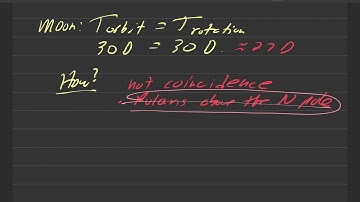 Moon: Torbit = Trotation
30 D = 30 D. ≈ 27 D
How? not coincidence
Polaris above the N pole